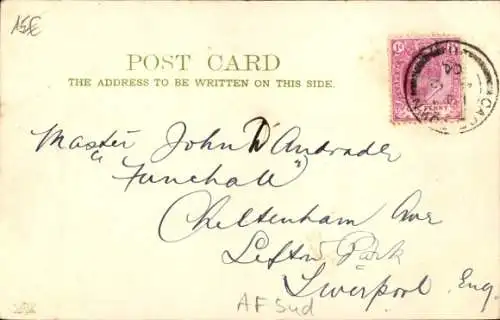 15£
POST CARD
THE ADDRESS TO BE WRITTEN ON THIS SIDE.
Master John D'Andrade
"Funchall"
Cheltenham Ave
Sefton Park
Liverpool Eng.
AF Sud
PENNY